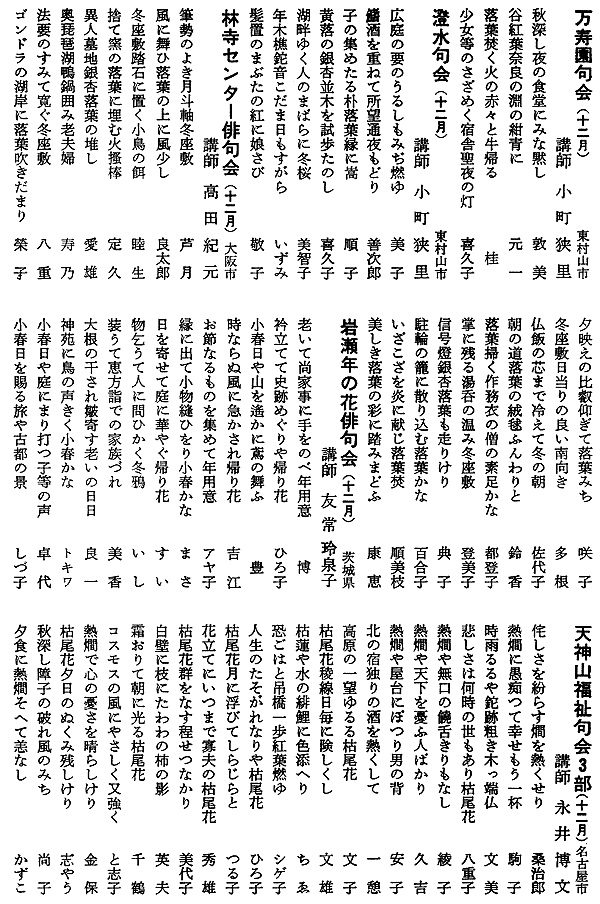 万寿園句会（十二月）
講師　小町　狭里　東村山市
秋深し夜の食堂にみな黙し　敦美
谷紅葉奈良の淵の紺青に　元一
落葉焚く火の赤々と牛帰る　桂
少女等のさざめく宿舎聖夜の灯　喜久子
澄水句会（十二月）
講師　小町　狭里　東村山市
広庭の要のうるしもみぢ燃ゆ　美子
鰭酒を重ねて所望通夜もどり　善次郎
子の集めたる朴落葉縁に嵩　順子
黄落の銀杏並木を試歩たのし　喜久子
湖畔ゆく人のまばらに冬桜　美智子
年木樵鉈音こだま日もすがら　いずみ
髪置のまぶたの紅に娘さび　敬子
林寺センター俳句会（十二月）
講師　高田　紀元　大阪市
筆勢のよき月斗軸冬座敷　芦月
風に舞ひ落葉の上に風少し　良太郎
冬座敷踏石に置く小鳥の餌　睦生
捨て窯の落葉に埋む火掻棒　定久
異人墓地銀杏落葉の堆し　愛雄
奥琵琶湖鴨鍋囲み老夫婦　寿乃
法要のすみて寛ぐ冬座敷　八重
ゴンドラの湖岸に落葉吹きだまり　榮子
夕映えの比叡仰ぎて落葉みち　咲子
冬座敷日当りの良い南向き　多根
仏飯の芯まで冷えて冬の朝　佐代子
朝の道落葉の絨毯ふんわりと　鈴香
落葉掃く作務衣の僧の素足かな　都登子
掌に残る湯呑の温み冬座敷　登美子
信号燈銀杏落葉も走りけり　典子
駐輪の籠に散り込む落葉かな　百合子
いざこざを炎に献じ落葉焚　順美枝
美しき落葉の彩に踏みまどふ　康恵
岩瀬年の花俳句会（十二月）
講師　友常　玲泉子　茨城県
老いて尚家事に手をのべ年用意　博
衿立てて史跡めぐりや帰り花　ひろ子
小春日や山を遙かに鳶の舞ふ　豊
時ならぬ風に急かされ帰り花　吉江
お節なるものを集めて年用意　アヤ子
縁に出て小物縫ひをり小春かな　まさ
日を寄せて庭に華やぐ帰り花　すい
物乞うて人に問ひかく冬鴉　いし
装うて恵方詣での家族づれ　美香
大根の干され皺寄す老いの日日　良一
神苑に鳥の声きく小春かな　トキワ
小春日や庭にまり打つ子等の声　卓代
小春日を賜る旅や古都の景　しづ子
天神山福祉句会３部（十二月）
講師　永井　博文　名古屋市
侘しさを紛らす燗を熱くせり　桑治郎
熱燗に愚痴つて幸せもう一杯　駒子
時雨るるや鉈跡粗き木っ端仏　文美
悲しさは何時の世もあり枯尾花　八重子
熱燗や無口の饒舌きりもなし　綾子
熱燗や天下を憂ふ人ばかり　久吉
熱燗や屋台にぽつり男の背　安子
北の宿独りの酒を熱くして　一憩
高原の一望ゆるる枯尾花　文子
枯尾花稜線日毎に険しくし　文雄
枯蓮や水の緋鯉に色添へり　ちゑ
恐ごはと吊橋一歩紅葉燃ゆ　シゲ子
人生のたそがれなりや枯尾花　ひろ子
枯尾花月に浮びてしらじらと　つる子
花立てにいつまで寡夫の枯尾花　秀雄
枯尾花群をなす程せつなかり　美代子
白壁に枝にたわわの柿の影　英夫
霜おりて朝に光る枯尾花　千鶴
コスモスの風にやさしく又強く　と志子
熱燗で心の憂さを晴らしけり　金保
枯尾花夕日のぬくみ残しけり　志やう
秋深し障子の破れ風のみち　尚子
夕食に熱燗そへて恙なし　かずこ